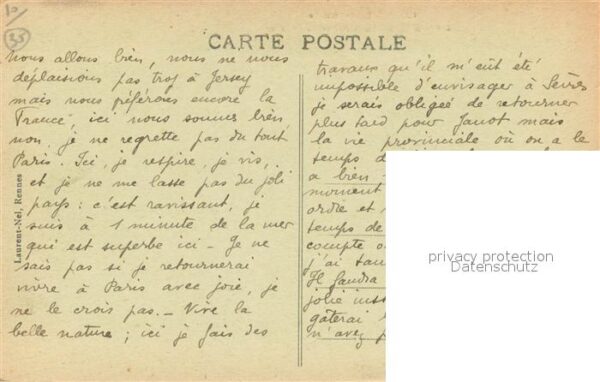 10
35
CARTE POSTALE
nous allons bien, nous ne nous
déplaisions pas trop à Jersey
mais nous préférons encore la
France, ici nous sommes bien
non, je ne regrette pas du tout
Paris. Ici, je respire, je vis
et je ne me lasse pas du joli
pays : c'est ravissant, je
suis à 1 minute de la mer
qui est superbe ici - Je ne
sais pas si je retournerai
vivre à Paris avec joie, je
ne le crois pas. - Vive la
belle nature ; ici je fais des
Laurent-Nel, Rennes
travaux qu'il m'eut été
impossible d'envisager à Sèvres
je serais obligée de retourner
plus tard pour Janot mais
la vie provinciale où on a le
temps d
a bien
moment
ordie et
temps de
compte o
j'ai tau
Il faudra
jolie
gaterai
n'avez p
privacy protection
Datenschutz